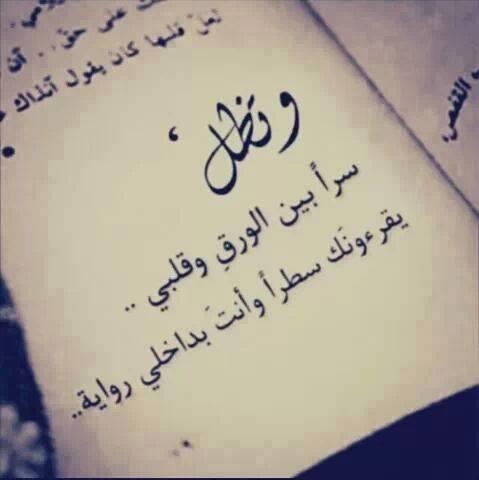 على حق .. أن
لعل قلبها كان يقول آنذاك
القفص
و تظل ،
سراً بين الورقِ وقلبي ..
يقرءونَك سطراً وأنتَ بداخلي رواية..